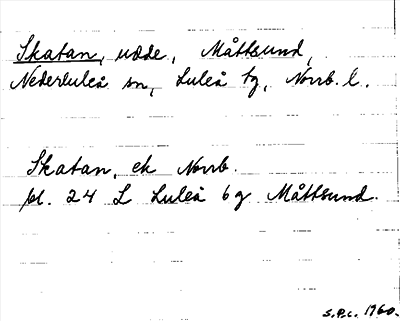 Skatan, udde, Måttsund,
Nederluleå sn, Luleå tg, Norrb. l.
Skatan, ek Norrb.
bl. 24 L Luleå 6g Måttsund.
S.P.C. 1960.